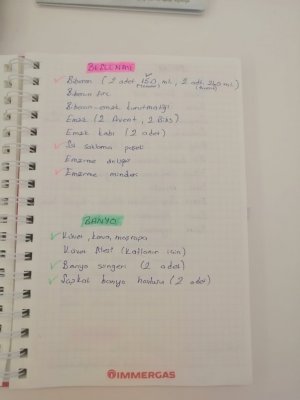 BESLENME
Biberon (2 adet 150 ml, 2 adet 240 ml)
Biberon
Biberon-emzik kurutmalığı
Emzik (2 Avent, 2 Bibs)
Emzik kabı (2 adet)
Süt saklama poşeti
Emzirme önlüğü
Emzirme minderi
BANYO
Küvet, kova, maşrapa
Küvet filesi
Banyo süngeri (2 adet)
Şapkalı banyo havlusu (2 adet)
IMMERGAS